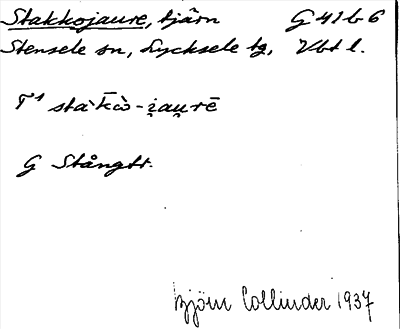 Stakkojaure, tjärn G 41 b 6
Stensele sn, Lycksele tg, Vbt l.
T¹ stak̄ò-i̯au̯rē
G Stångtt.
Björn Collinder 1937